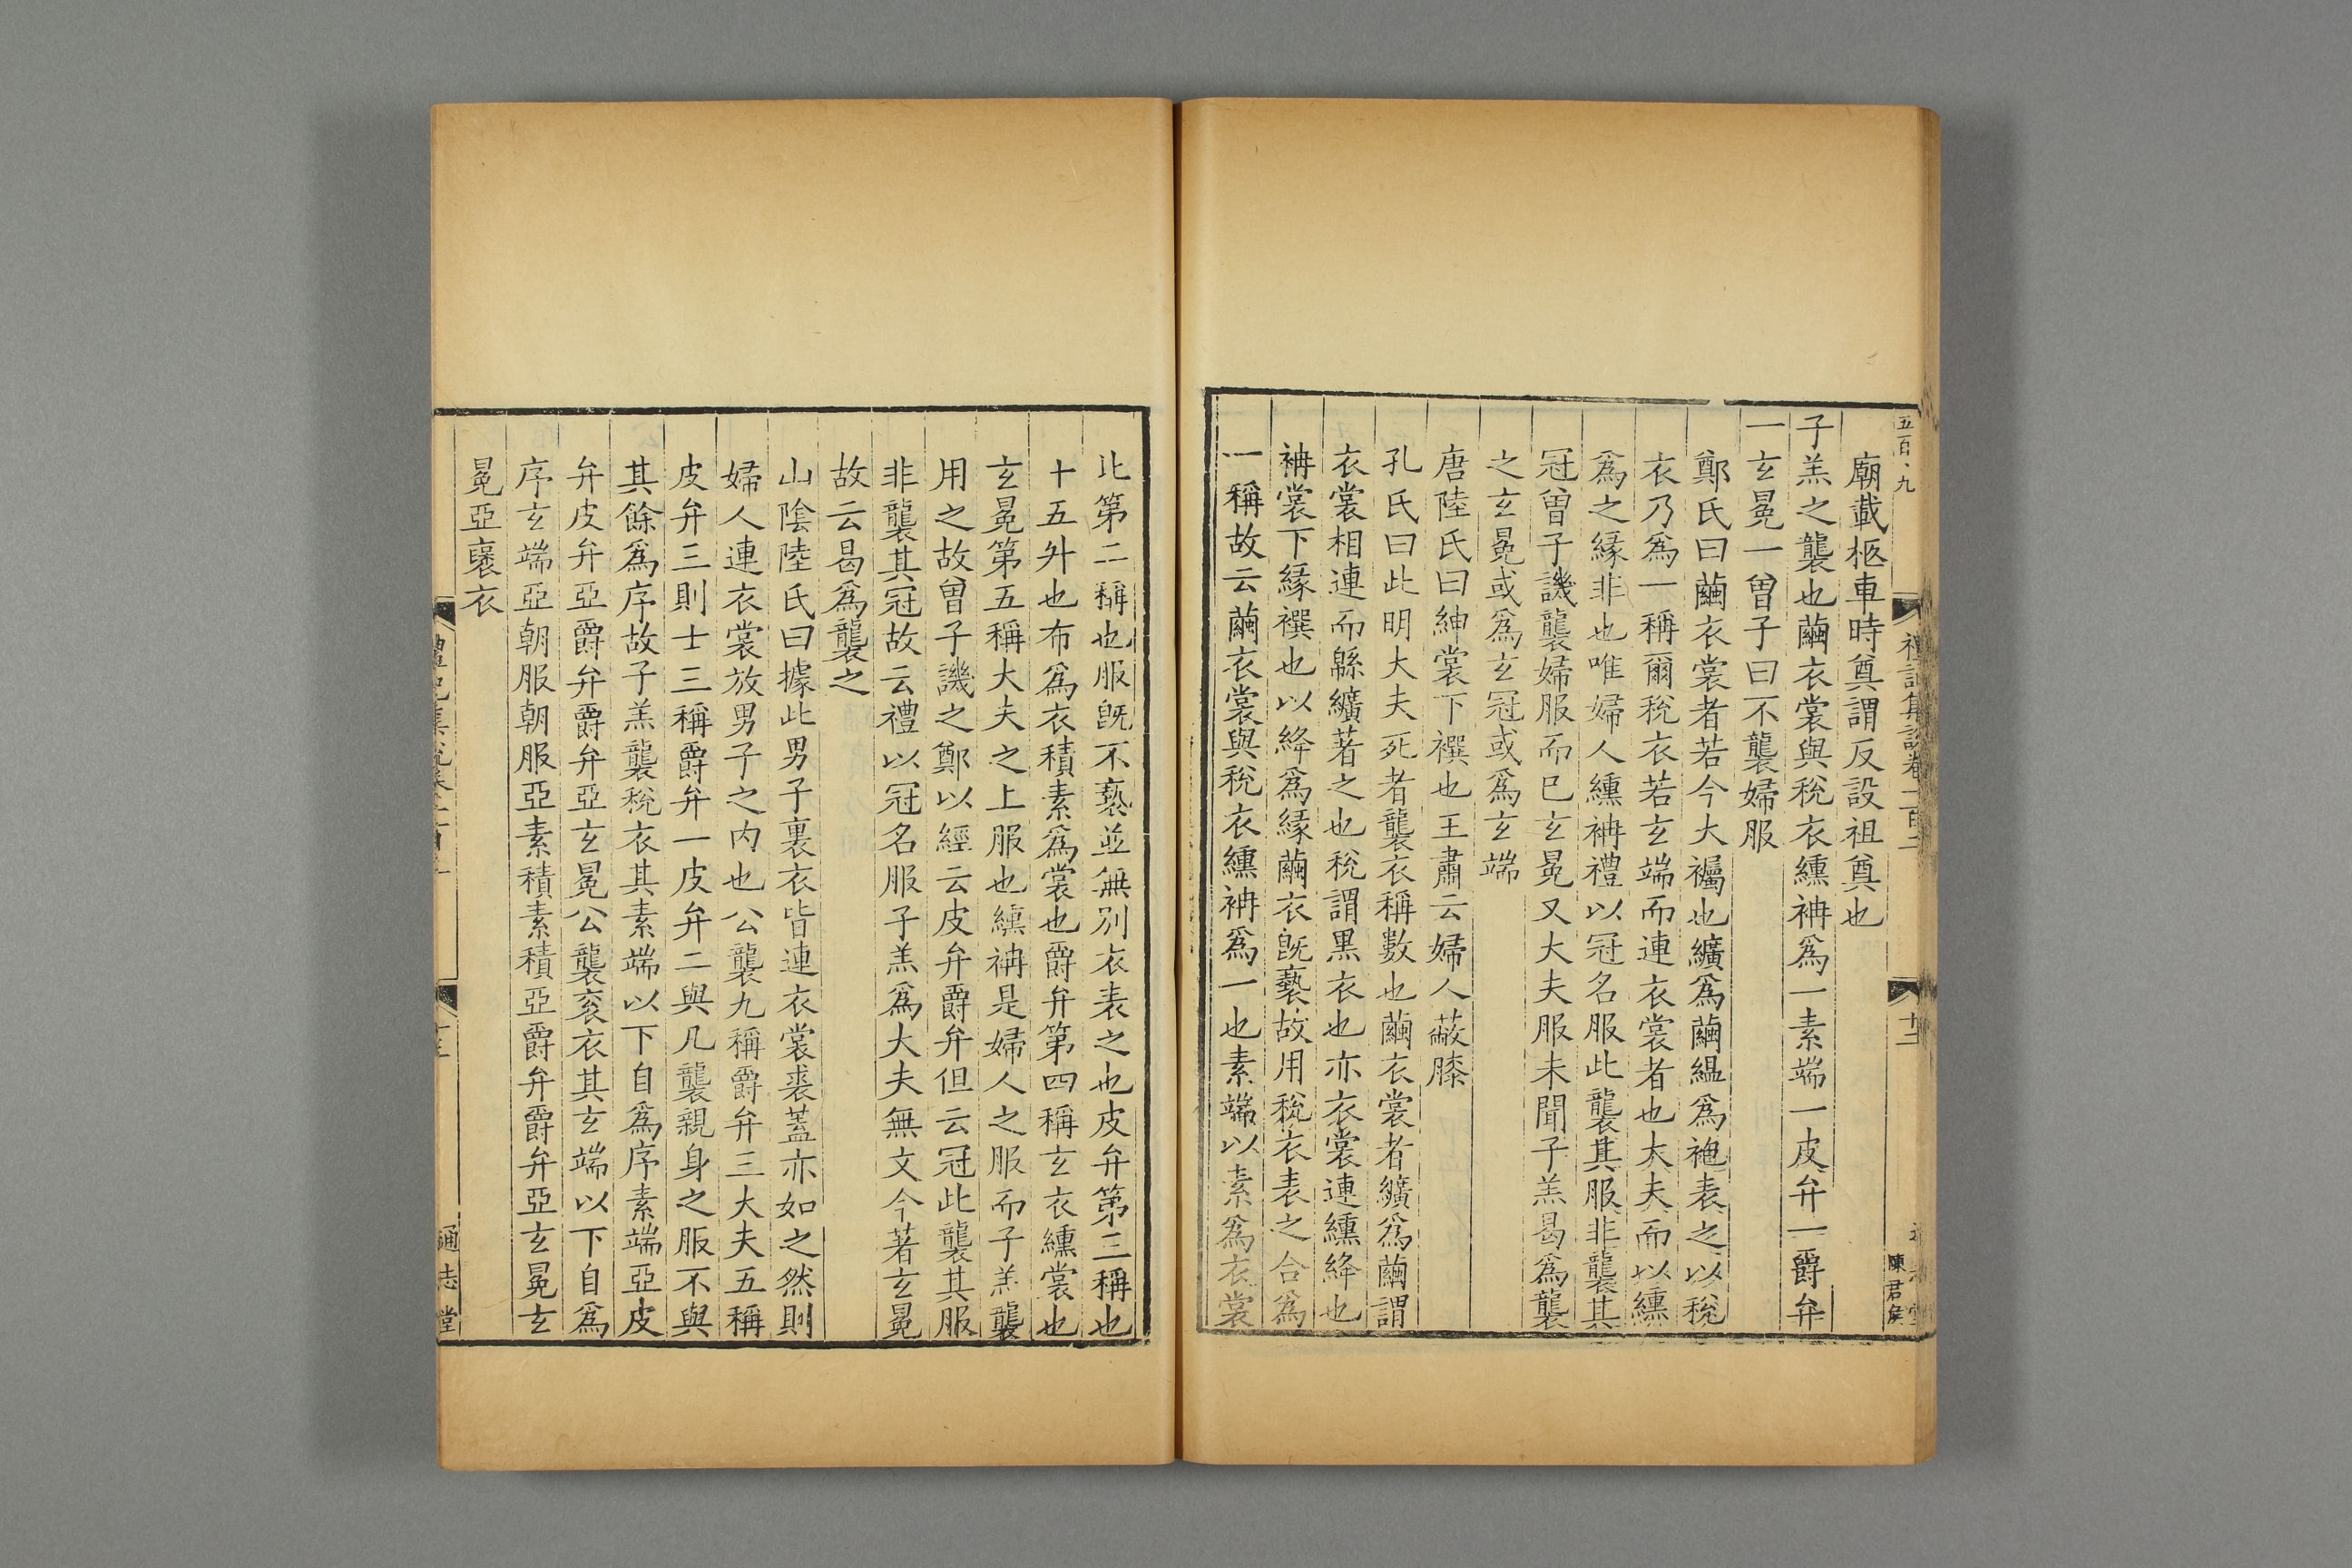 五百九
禮記集說卷一百二
十二
陳君侯
廟載柩車時奠謂反設祖奠也
子羔之襲也繭衣裳與稅衣纁袡爲一素端一皮弁一爵弁
一玄冕一曽子曰不襲婦服
鄭氏曰繭衣裳者若今大襡也纊爲繭緼爲袍表之以稅
衣乃爲一稱爾稅衣若玄端而連衣裳者也大夫而以纁
爲之緣非也唯婦人纁袡禮以冠名服此襲其服非襲其
冠曽子譏襲婦服而已玄冕又大夫服未聞子羔曷爲襲
之玄冕或爲玄冠或爲玄端
唐陸氏曰紳裳下襈也王肅云婦人蔽膝
孔氏曰此明大夫死者襲衣稱數也繭衣裳者纊爲繭謂
衣裳相連而緜纊著之也稅謂黒衣也亦衣裳連纁絳也
袡裳下緣襈也以絳爲緣繭衣旣褻故用稅衣表之合爲
一稱故云繭衣裳與稅衣纁袡爲一也素端以素爲衣裳
此第二稱也服旣不褻並無別衣表之也皮弁第三稱也
十五升也布爲衣積素爲裳也爵弁第四稱玄衣纁裳也
玄冕第五稱大夫之上服也纁袡是婦人之服而子羔襲
用之故曽子譏之鄭以經云皮弁爵弁但云冠此襲其服
非襲其冠故云禮以冠名服子羔爲大夫無文今著玄冕
故云曷爲襲之
山陰陸氏曰據此男子裏衣皆連衣裳裘蓋亦如之然則
婦人連衣裳放男子之内也公襲九稱爵弁三大夫五稱
皮弁三則士三稱爵弁一皮弁二與凡襲親身之服不與
其餘爲序故子羔襲稅衣其素端以下自爲序素端亞皮
弁皮弁亞爵弁爵弁亞玄冕公襲衮衣其玄端以下自爲
序玄端亞朝服朝服亞素積素積亞爵弁爵弁亞玄冕玄
冕亞襃衣
通志堂